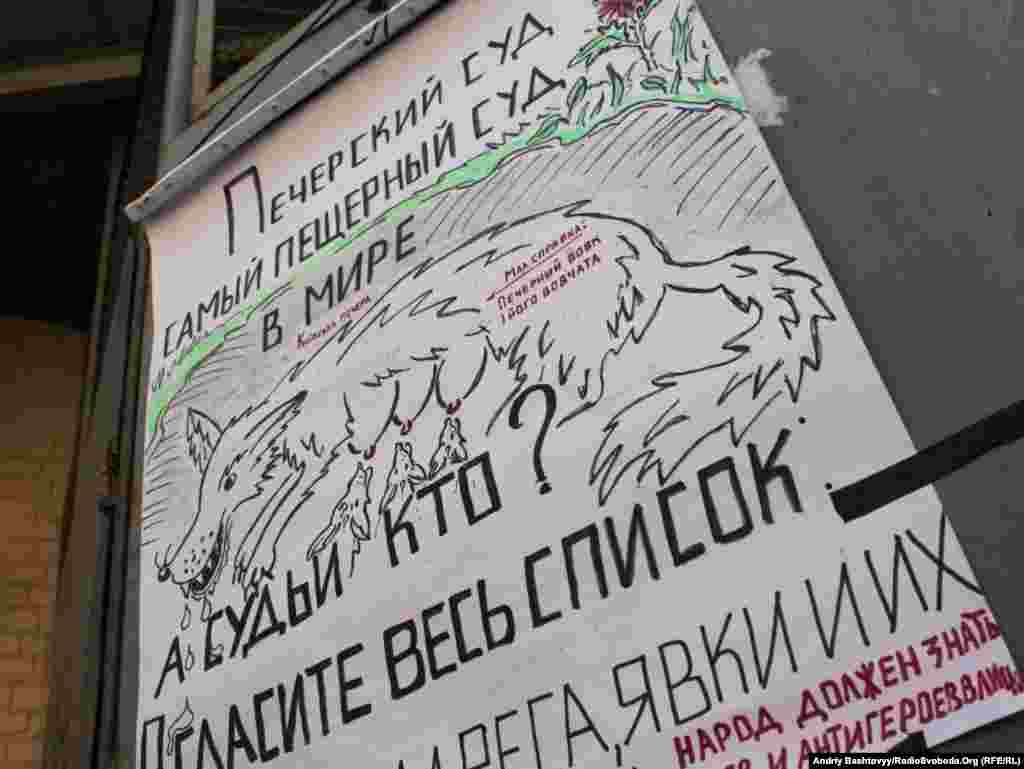 Печерский суд
самый пещерный суд
в мире
Мал. справка:
Печерний вовк
і його вовчата
А судьи кто?
огласите весь список.
рега, явки и их
народ должен знать
и антигероев в лицо
Andriy Bashtovyy/RadioSvoboda.Org (RFE/RL)